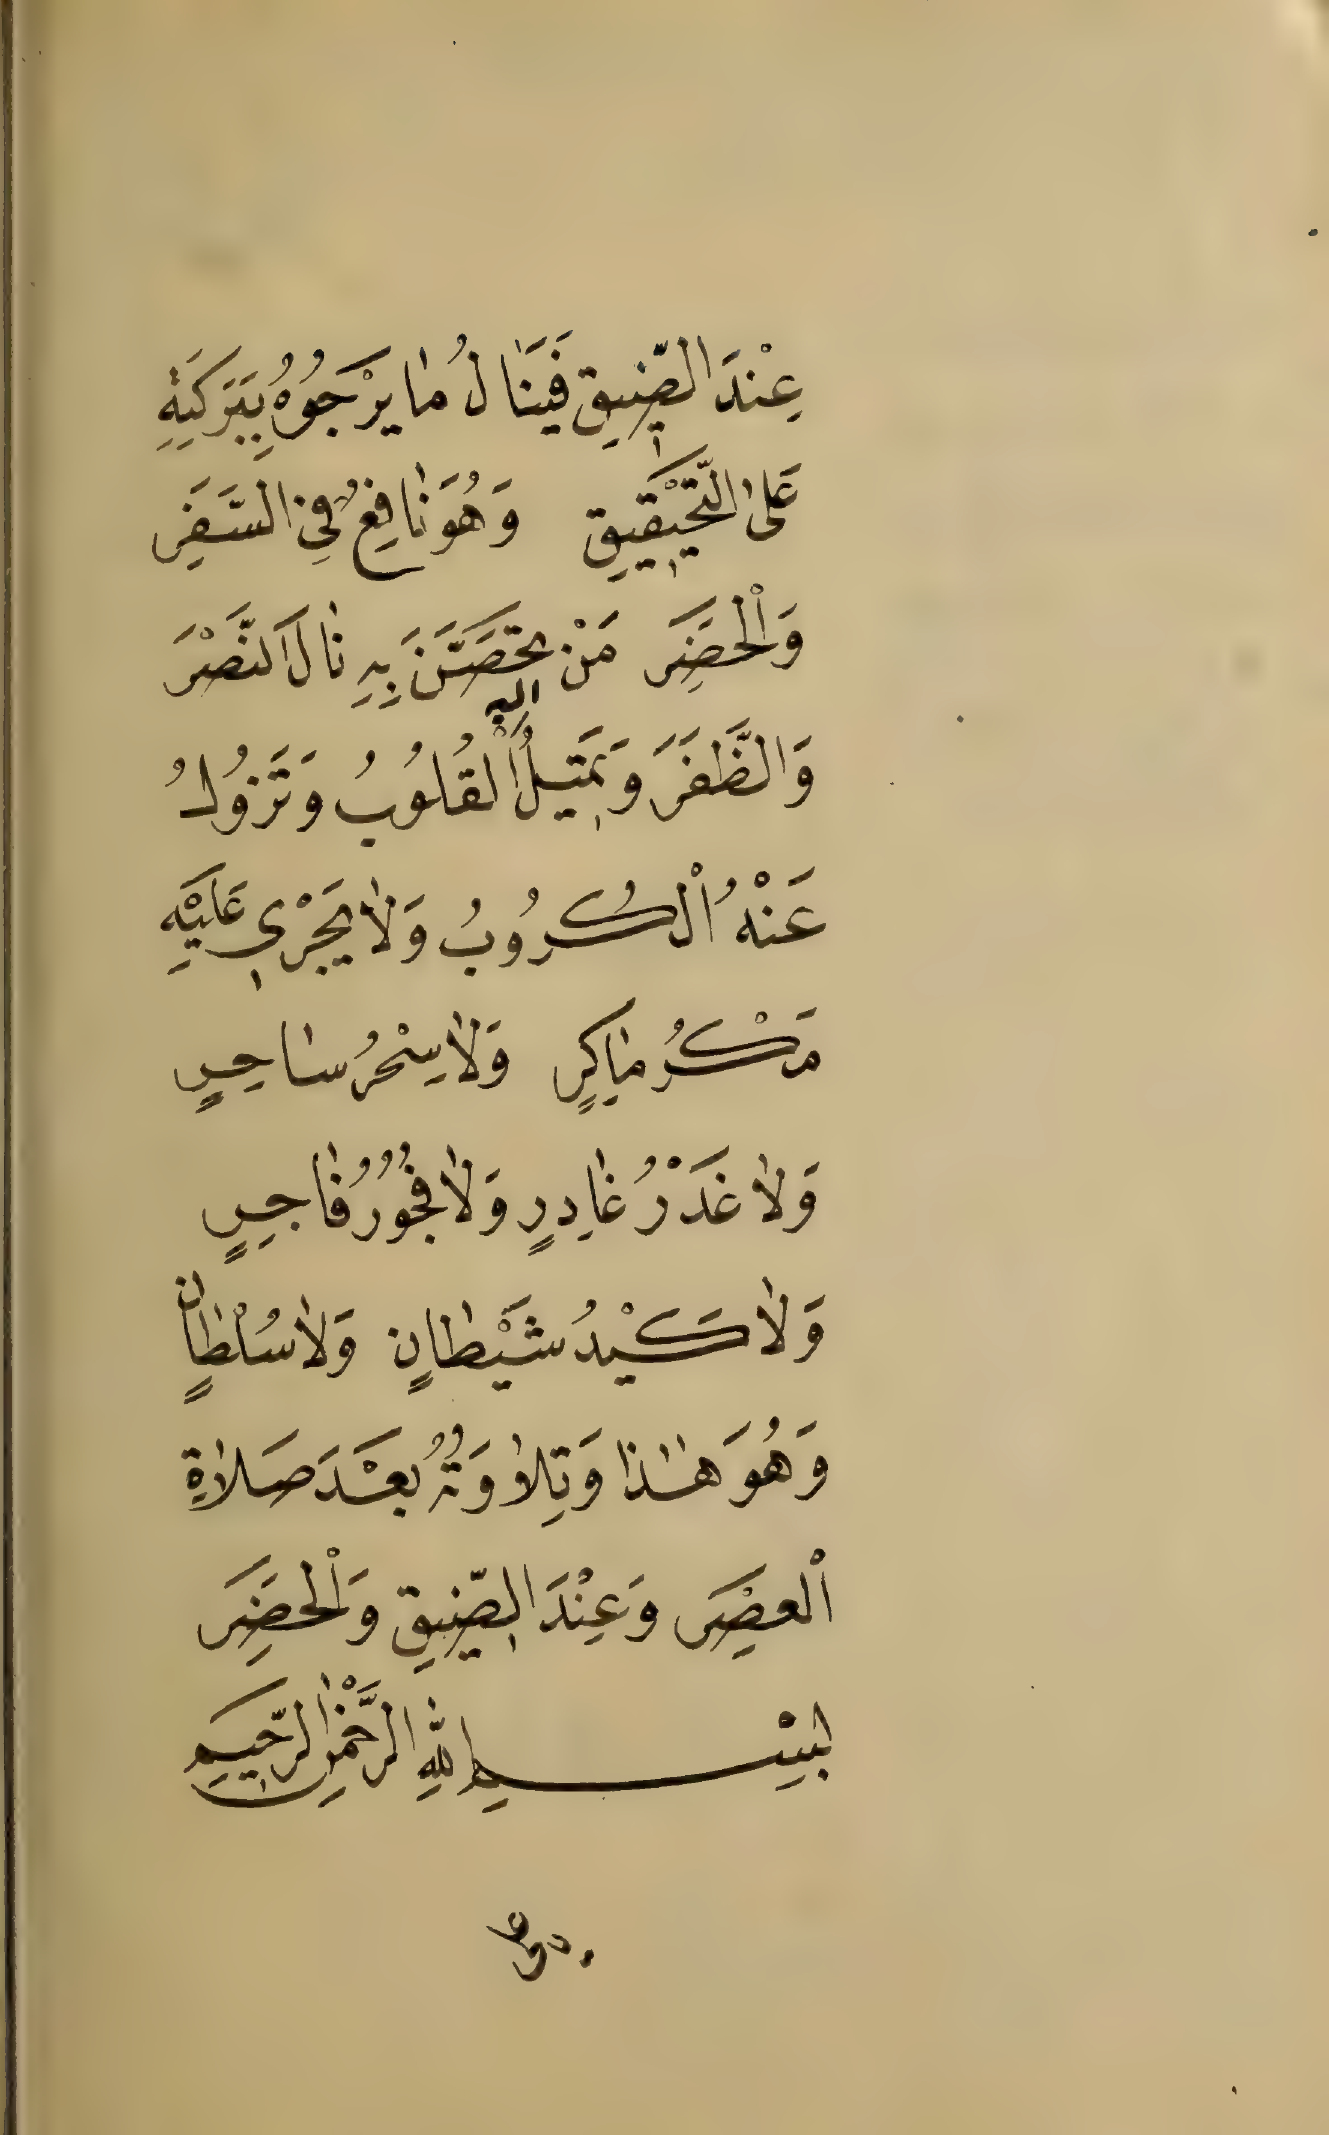 عِنْدَ الضِّيقِ فَيَنَالُ مَا يَرْجُوهُ بِبَرَكَتِهِ
عَلَى التَّحْقِيقِ وَهُوَ نَافِعٌ فِي السَّفَرِ
وَالْحَضَرِ مَنْ تَحَصَّنَ بِهِ نَالَ النَّصْرَ
وَالظَّفَرَ وَتَمِيلُ اليه الْقُلُوبُ وَتَزُولُ
عَنْهُ الْكُرُوبُ وَلَا يَجْرِي عَلَيْهِ
مَكْرُ مَاكِرٍ وَلَا سِحْرُ سَاحِرٍ
وَلَا غَدْرُ غَادِرٍ وَلَا فُجُورُ فَاجِرٍ
وَلَا كَيْدُ شَيْطَانٍ وَلَا سُلْطَانٍ
وَهُوَ هٰذَا وَتِلَاوَتُهُ بَعْدَ صَلَاةِ
الْعَصْرِ وَعِنْدَ الضِّيقِ وَالْحَضَرِ
بِسْمِ اللّٰهِ الرَّحْمٰنِ الرَّحِيمِ